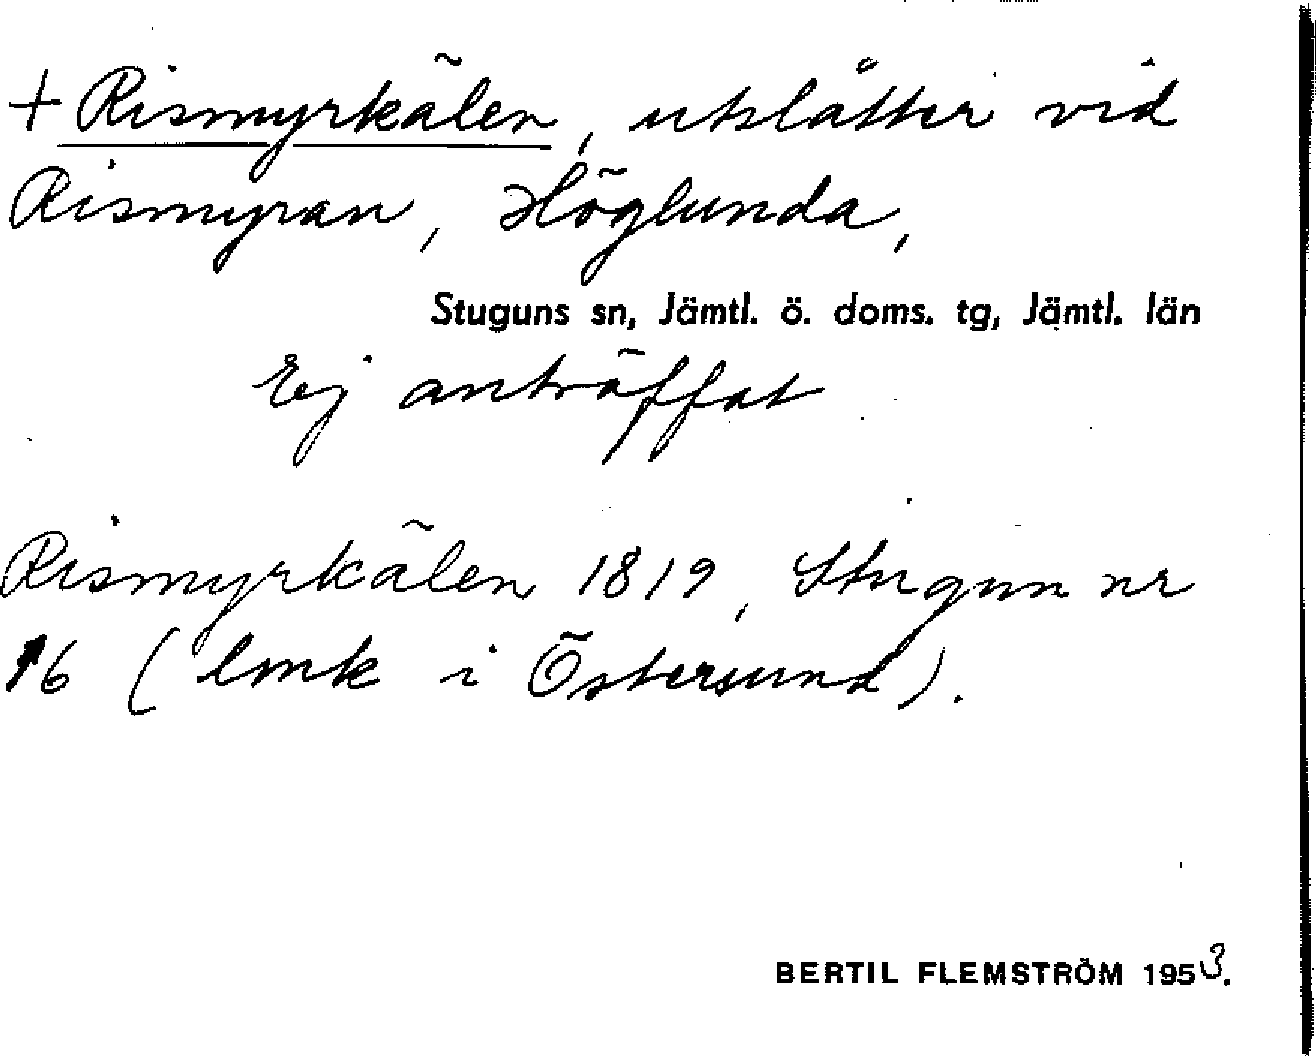 + Rismyrkälen, utslåtter vid
Rismyran, Höglunda,
Stuguns sn, Jämtl. ö. doms. tg, Jämtl. län
Ej anträffat
Rismyrkälen 1819, Stugun nr
16 (lmk i Östersund).
BERTIL FLEMSTRÖM 1953.